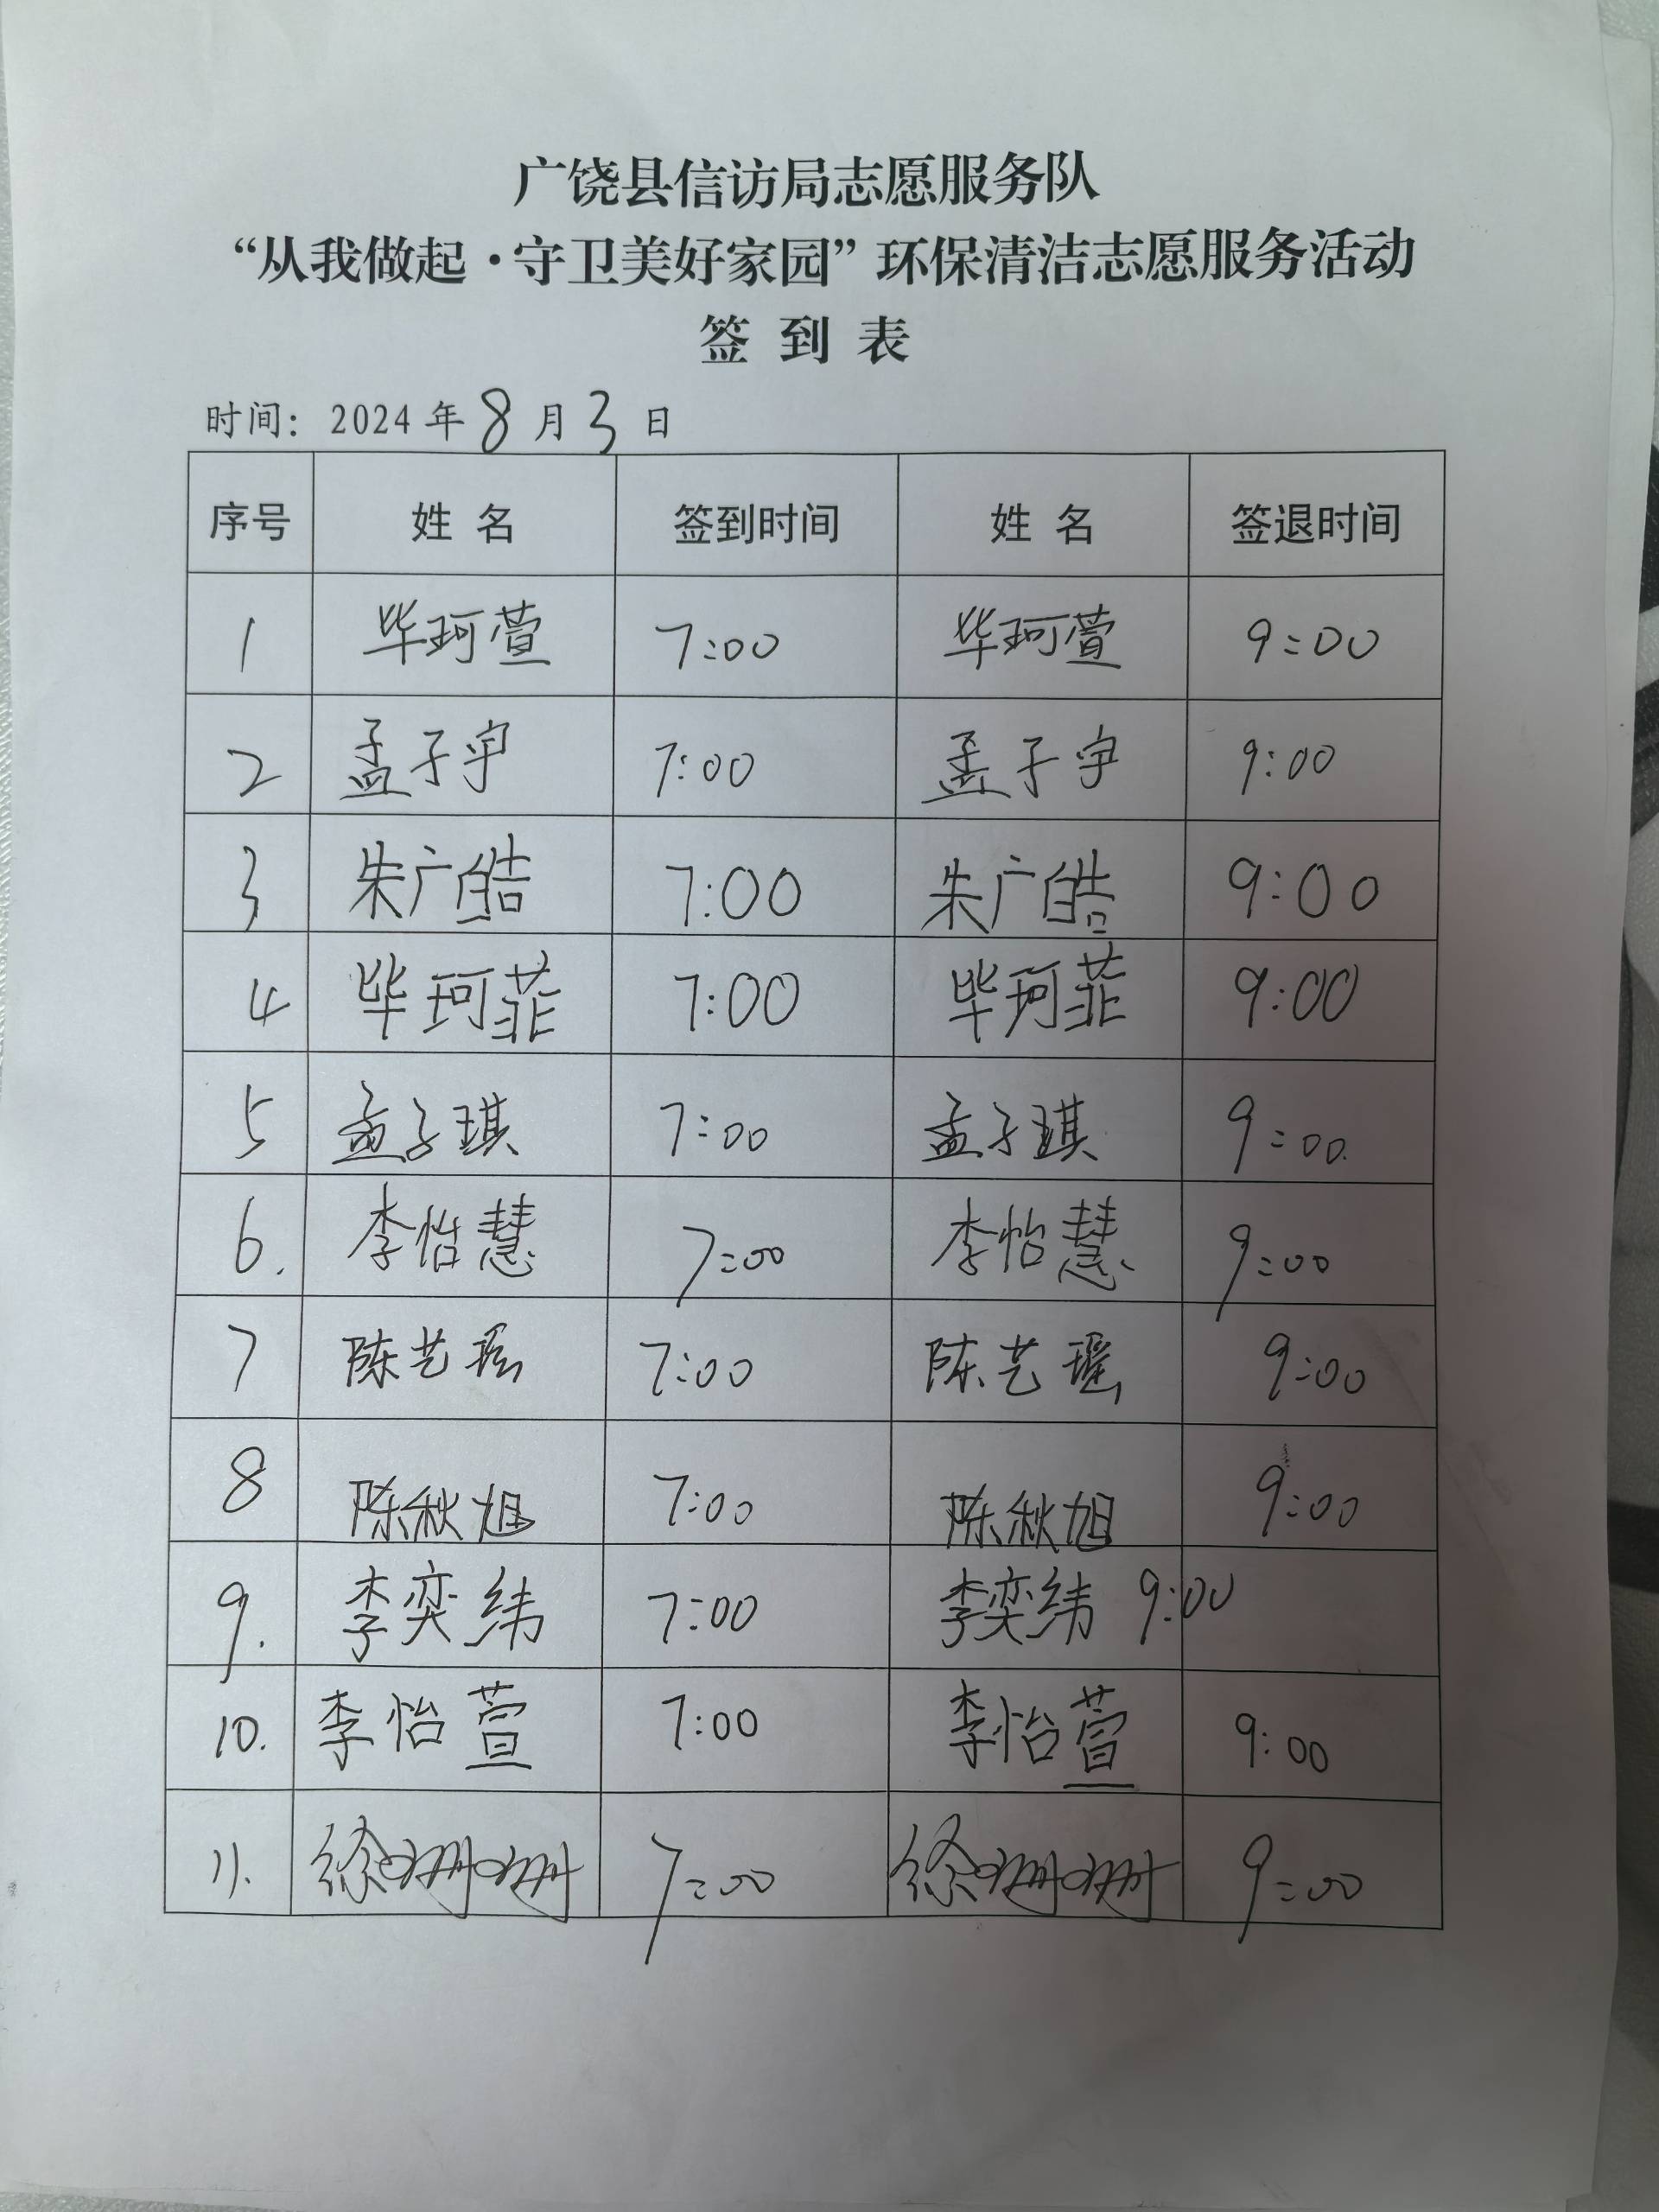 广饶县信访局志愿服务队
“从我做起·守卫美好家园”环保清洁志愿服务活动
签 到 表
时间： 2024 年 8 月 3 日
序号 姓 名 签到时间 姓 名 签退时间
1 毕珂萱 7:00 毕珂萱 9:00
2 孟子宇 7:00 孟子宇 9:00
3 朱广皓 7:00 朱广皓 9:00
4 毕珂菲 7:00 毕珂菲 9:00
5 孟子琪 7:00 孟子琪 9:00
6. 李怡慧 7:00 李怡慧 9:00
7 陈艺瑶 7:00 陈艺瑶 9:00
8 陈秋旭 7:00 陈秋旭 9:00
9. 李奕纬 7:00 李奕纬 9:00
10. 李怡萱 7:00 李怡萱 9:00
11. 徐珊珊 7:00 徐珊珊 9:00